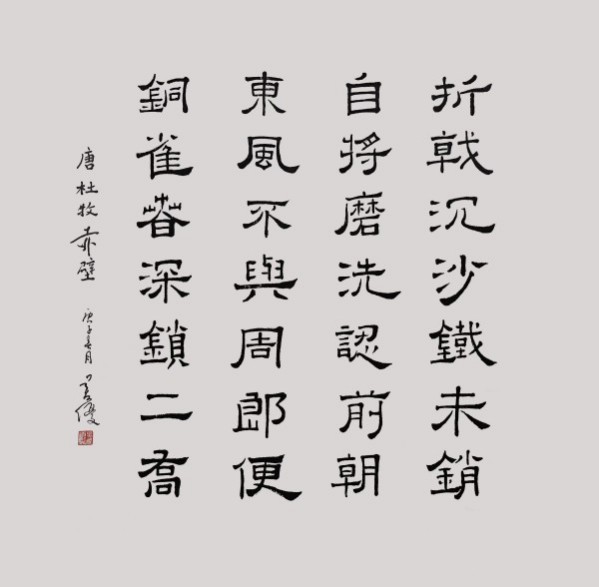 折戟沉沙鐵未銷
自將磨洗認前朝
東風不與周郎便
銅雀春深鎖二喬
唐杜牧赤壁 庚子春月